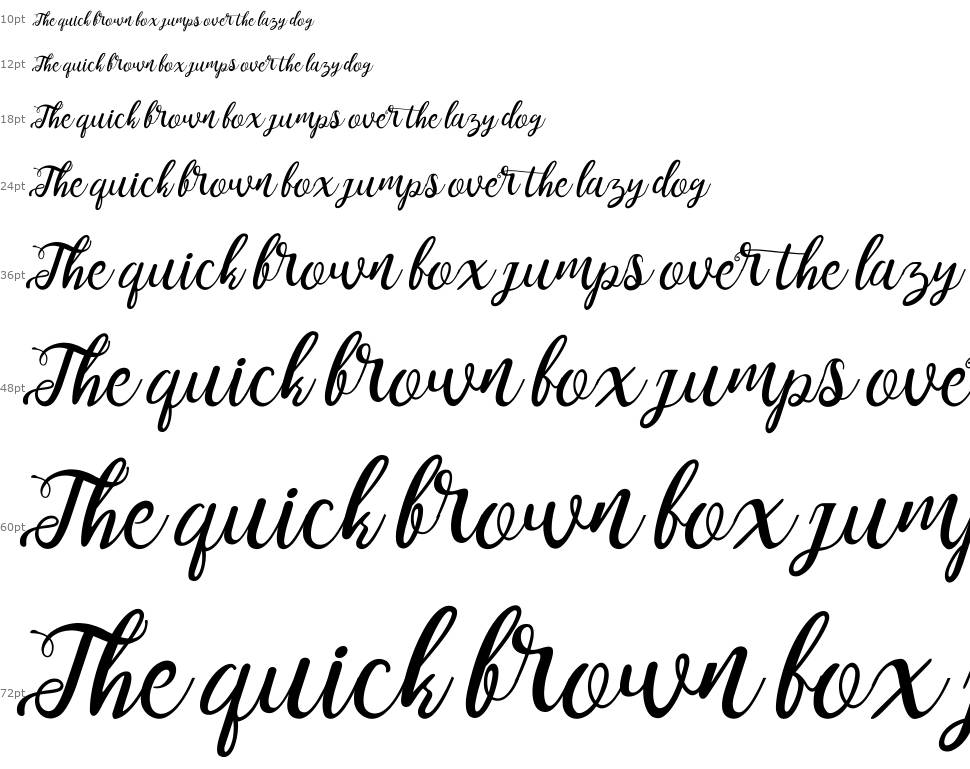 10pt The quick brown fox jumps over the lazy dog
12pt The quick brown fox jumps over the lazy dog
18pt The quick brown fox jumps over the lazy dog
24pt The quick brown fox jumps over the lazy dog
36pt The quick brown fox jumps over the lazy
48pt The quick brown fox jumps ove
60pt The quick brown fox jum
72pt The quick brown fox